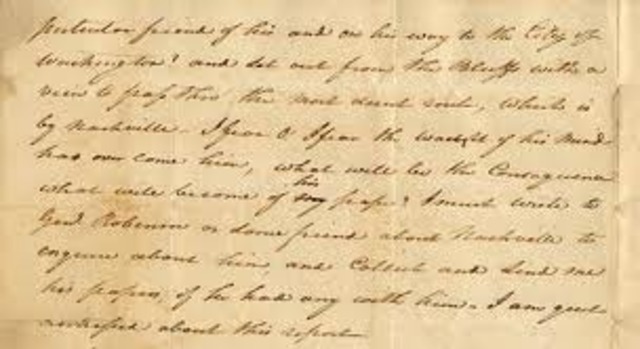 perticular friend of his and on his way to the City of
Washington! and set out from the Bluffs with a
view to pass thro' the most direct rout, which is
by Nashville - I fear O I fear the waight of his mind
has over come him, what will be the Consequence
what will become of my his paprs? I must write to
Genl Robinson or some friend about Nashville to
enquire about him, and Collect and Send me
his papers, if he had any with him - I am quit
distressed about this report